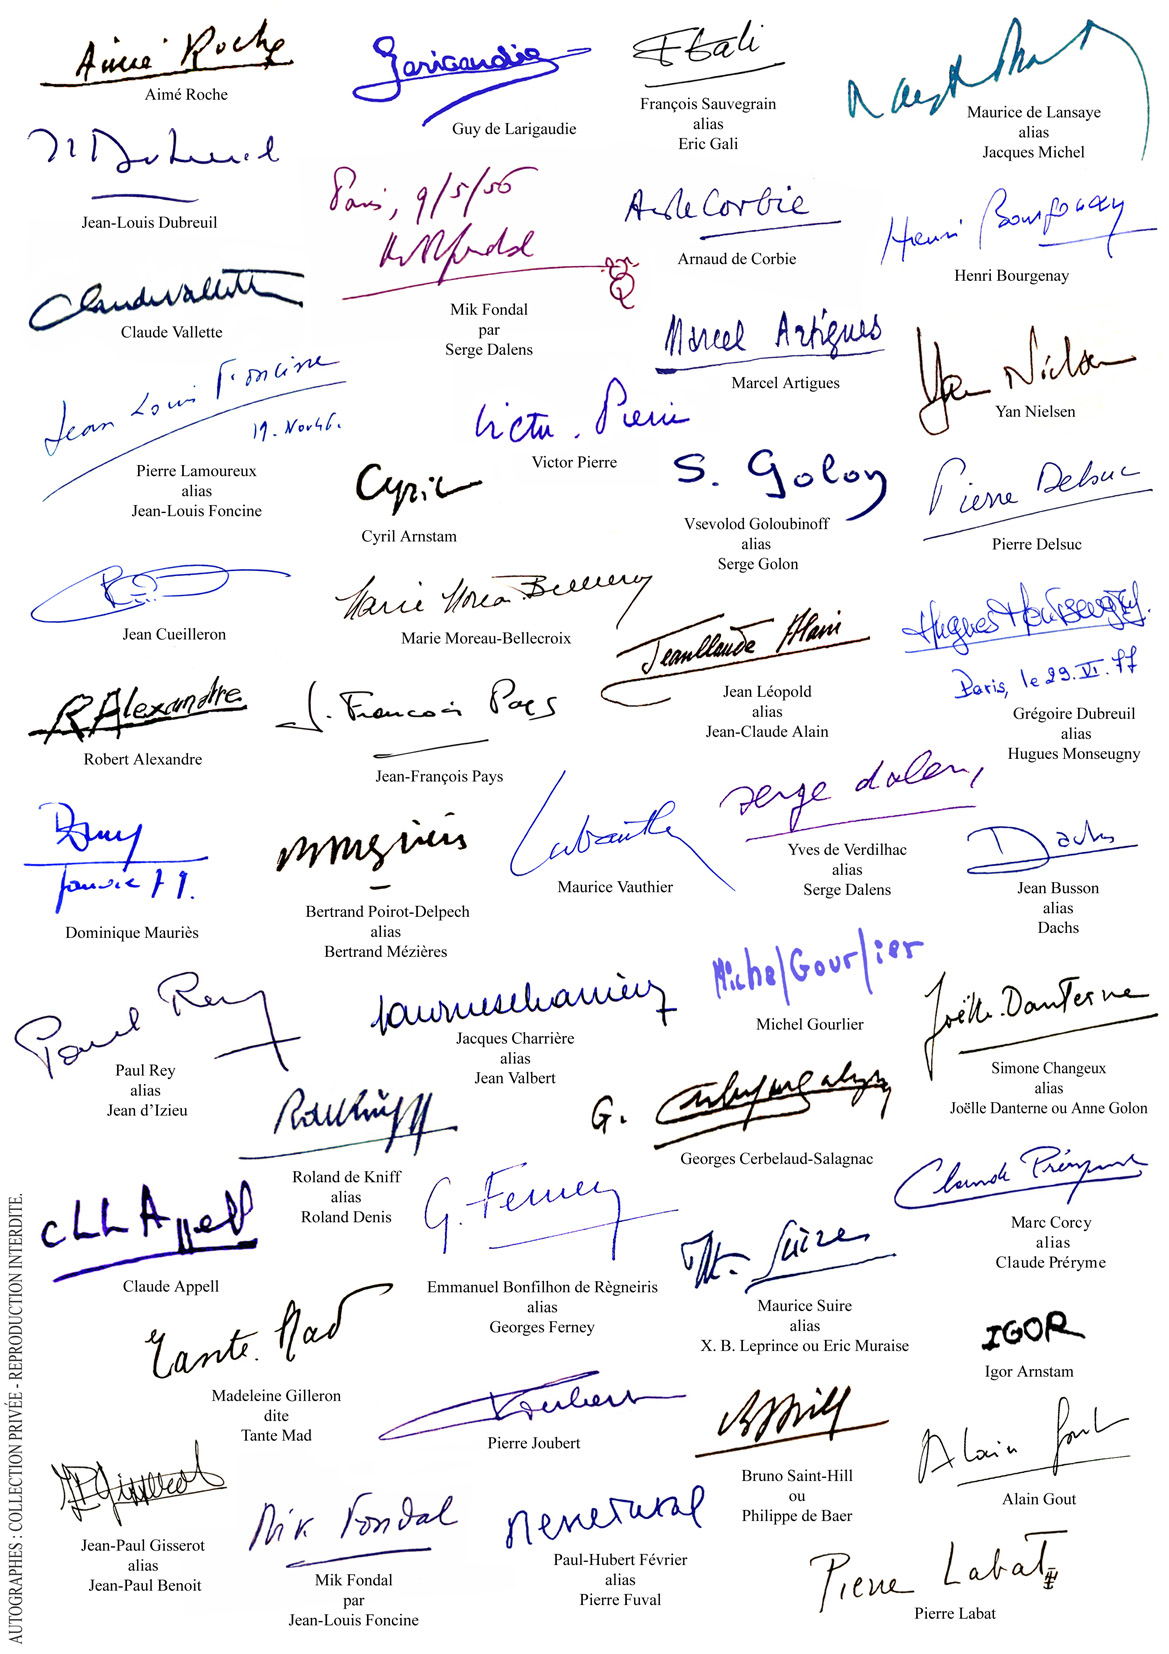 Aimé Roche
Aimé Roche
Larigaudie
Guy de Larigaudie
E Gali
François Sauvegrain
alias
Eric Gali
Maurice de Lansaye
alias
Jacques Michel
Dubreuil
Jean-Louis Dubreuil
Paris, 9/5/56
Mik Fondal
Mik Fondal
par
Serge Dalens
A de Corbie
Arnaud de Corbie
Henri Bourgenay
Henri Bourgenay
Claude Vallette
Claude Vallette
Marcel Artigues
Marcel Artigues
Yan Nielsen
Yan Nielsen
Jean Louis Foncine
Pierre Lamoureux
alias
Jean-Louis Foncine
Victor Pierre
Victor Pierre
Cyril
Cyril Arnstam
S. Golon
Vsevolod Goloubinoff
alias
Serge Golon
Pierre Delsuc
Pierre Delsuc
Jean Cueilleron
Marie Moreau-Bellecroix
Marie Moreau-Bellecroix
Jean Claude Alain
Jean Léopold
alias
Jean-Claude Alain
Hugues Monseugny.
Paris, le 29.VI.77
Grégoire Dubreuil
alias
Hugues Monseugny
R Alexandre
Robert Alexandre
J. François Pays
Jean-François Pays
Serge Dalens,
Yves de Verdilhac
alias
Serge Dalens
Domy
Janvier 79.
Dominique Mauriès
B Mézières
Bertrand Poirot-Delpech
alias
Bertrand Mézières
Maurice Vauthier
Dachs
Jean Busson
alias
Dachs
Paul Rey
Paul Rey
alias
Jean d'Izieu
Jacques Charrière
Jacques Charrière
alias
Jean Valbert
Michel Gourlier
Michel Gourlier
Joëlle Danterne
Simone Changeux
alias
Joëlle Danterne ou Anne Golon
R de Kniff
Roland de Kniff
alias
Roland Denis
G. Cerbelaud Salagnac
Georges Cerbelaud-Salagnac
Claude Préryme
Marc Corcy
alias
Claude Préryme
CLL Appell
Claude Appell
G. Ferney
Emmanuel Bonfilhon de Règneiris
alias
Georges Ferney
M. Suire
Maurice Suire
alias
X. B. Leprince ou Eric Muraise
Tante Mad
Madeleine Gilleron
dite
Tante Mad
IGOR
Igor Arnstam
Joubert
Pierre Joubert
B St Hill
Bruno Saint-Hill
ou
Philippe de Baer
Alain Gout
Alain Gout
JP Gisserot
Jean-Paul Gisserot
alias
Jean-Paul Benoit
Mik Fondal
Mik Fondal
par
Jean-Louis Foncine
Pierre Fuval
Paul-Hubert Février
alias
Pierre Fuval
Pierre Labat
Pierre Labat
AUTOGRAPHES : COLLECTION PRIVÉE - REPRODUCTION INTERDITE.